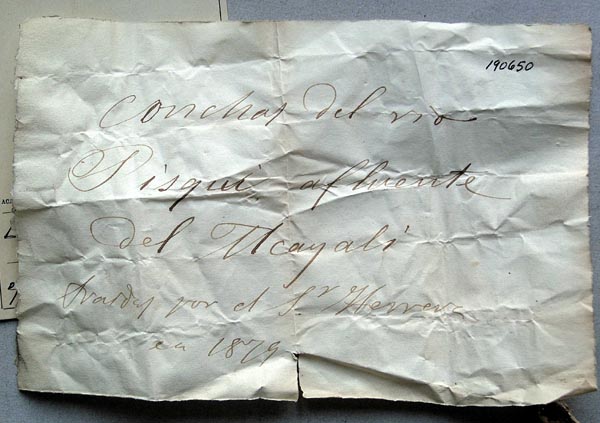 190650
Conchas del rio
Pisqui, afluente
del Ucayali
traidas por el Sr Herrera
en 1879